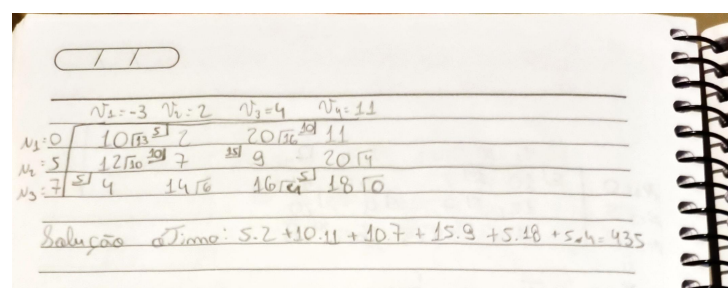 V1=-3 V2=2 V3=4 V4=11
u1=0 10 13 5 2 20 16 10 11
u2=5 12 10 10 7 15 9 20 4
u3=7 5 4 14 6 16 5 18 0
Solução óTimo: 5.2 +10.11 + 107 + 15.9 + 5.18 + 5.4 = 435